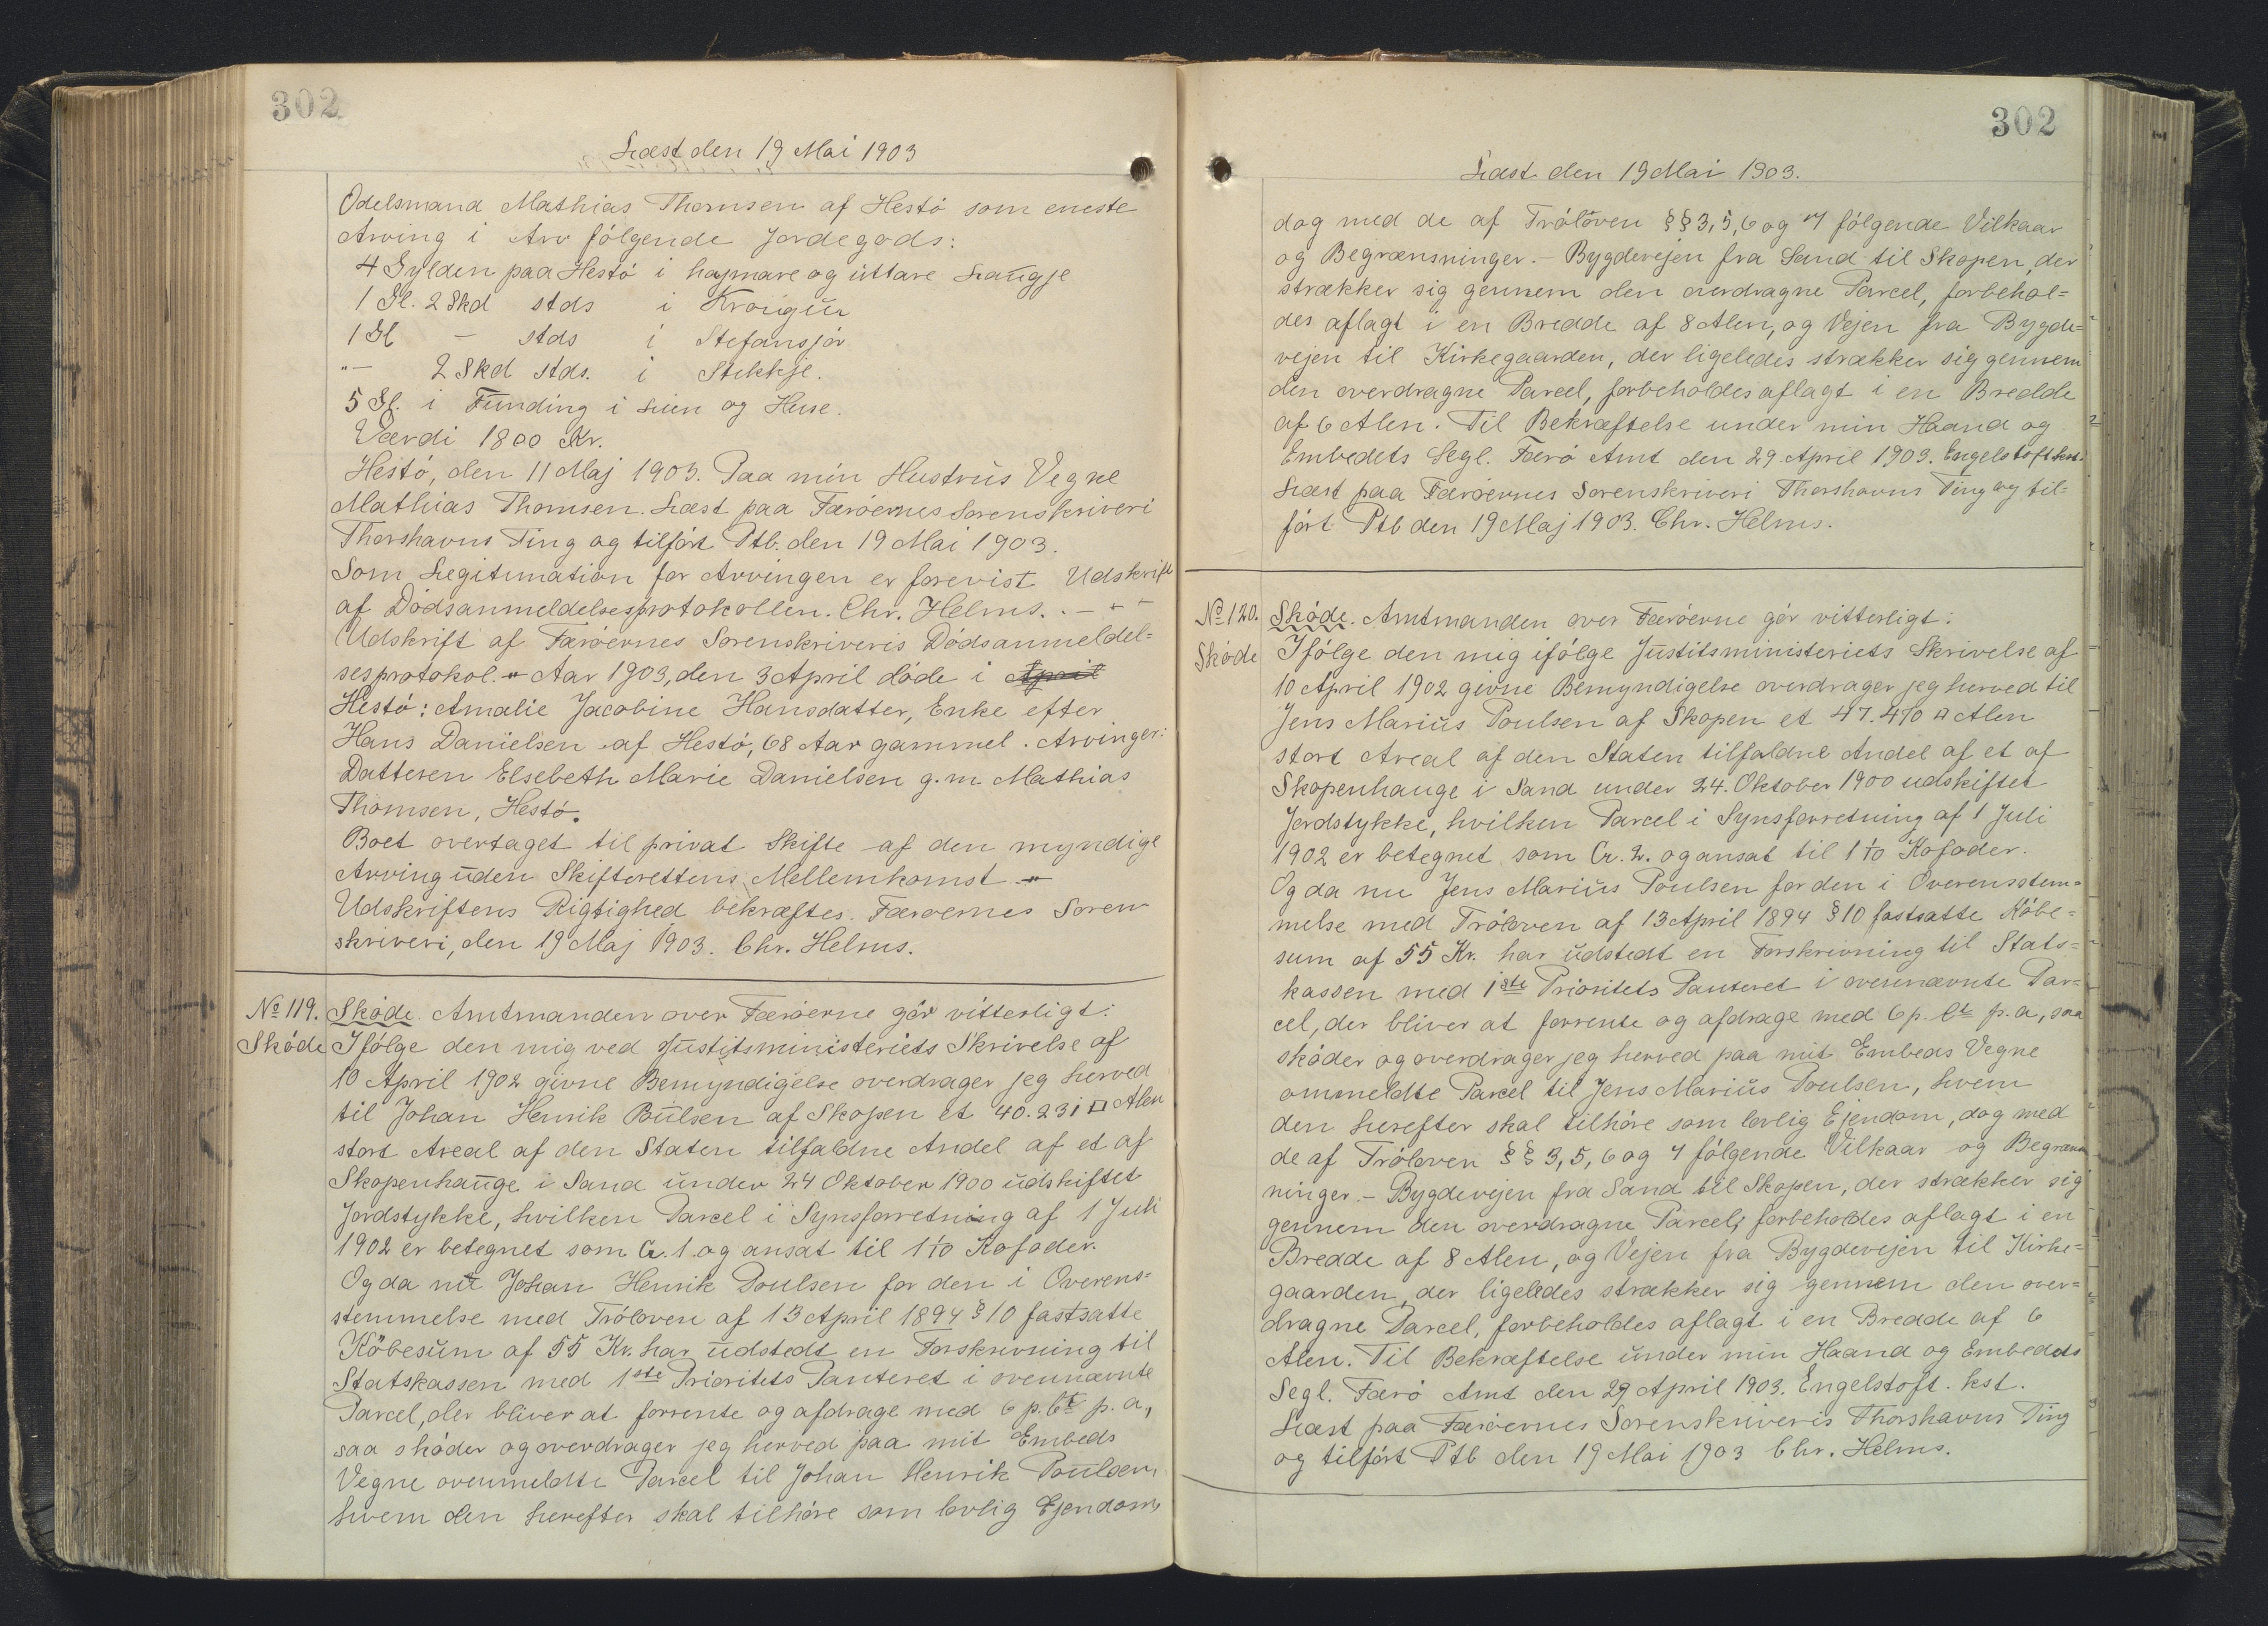 302
Læst den 19 Mai 1903
Odelsmand Mathias Thomsen af Hestö som eneste
Arving i Arv fölgende Jordegods:
4 Gylden paa Hestö i hajmare og úttare Haugje
1 Gl. 2 Skd stds i Krougun
1 Gl — stds i Stefansjör
"— 2 Skd stds. i Stekkje.
5 Gl. i Funding i Lien og Huse.
Værdi 1800 Kr.
Hestö, den 11 Maj 1903. Paa min Hustrus Vegne
Mathias Thomsen. Læst paa Færöernes Sorenskriveri
Thorshavns Ting og tilfört Ptb. den 19 Mai 1903.
Som Legitimation for Arvingen er forevist Udskrift
af Dödsanmeldelsesprotokollen. Chr. Helms. - - -
Udskrift af Færöernes Sorenskriveris Dödsanmeldel=
sesprotokol. - Aar 1903, den 3 April döde i April
Hestö: Amalie Jacobine Hansdatter, Enke efter
Hans Danielsen af Hestö, 68 Aar gammel. Arvinger:
Datteren Elsebeth Marie Danielsen g. m. Mathias
Thomsen, Hestö.
Boet overtaget til privat Skifte af den myndige
Arving uden Skifterettens Mellemkomst. -
Udskriftens Rigtighed bekræftes. Færöernes Soren
skriveri, den 19 Maj 1903. Chr. Helms.
No 119. Sköde. Amtmanden over Færöerne gör vitterligt:
Sköde Ifölge den mig ved Justitsministeriets Skrivelse af
10 April 1902 givne Bemyndigelse overdrager jeg herved
til Johan Henrik Poulsen af Skopen et 40.231 □ Alen
stort Areal af den Staten tilfaldne Andel af et af
Skopenhauge i Sand under 24 Oktober 1900 udskiftet
Jordstykke, hvilken Parcel i Synsforretning af 1 Juli
1902 er betegnet som Cr. 1. og ansat til 1 1/10 Kofoder.
Og da nu Johan Henrik Poulsen for den i Overens=
stemmelse med Tröloven af 13 April 1894 § 10 fastsatte
Köbesum af 55 Kr. har udstedt en Forskrivning til
Statskassen med 1ste Prioritets Panteret i ovennævnte
Parcel, der bliver at forrente og afdrage med 6 p. Ct p. a.,
saa sköder og overdrager jeg herved paa mit Embeds
Vegne ovenmeldte Parcel til Johan Henrik Poulsen,
hvem den herefter skal tilhöre som lovlig Ejendom,
302
Læst den 19 Mai 1903.
dog med de af Tröloven §§ 3, 5, 6 og 7 fölgende Vilkaar
og Begrænsninger. - Bygdevejen fra Sand til Skopen, der
strækker sig gennem den overdragne Parcel, forbehol=
des aflagt i en Bredde af 8 Alen, og Vejen fra Bygde=
vejen til Kirkegaarden, der ligeledes strækker sig gennem
den overdragne Parcel, forbeholdes aflagt i en Bredde
af 6 Alen. Til Bekræftelse under min Haand og
Embedets Segl. Færö Amt den 29 April 1903. Engelstoft kst.
Læst paa Færöernes Sorenskriveri Thorshavns Ting og til=
fört Ptb den 19 Maj 1903. Chr. Helms.
No 120. Sköde. Amtmanden over Færöerne gör vitterligt:
Sköde Ifölge den mig ifölge Justitsministeriets Skrivelse af
10 April 1902 givne Bemyndigelse overdrager jeg herved til
Jens Marius Poulsen af Skopen et 47.470 □ Alen
stort Areal af den Staten tilfaldne Andel af et af
Skopenhauge i Sand under 24. Oktober 1900 udskiftet
Jordstykke, hvilken Parcel i Synsforretning af 1 Juli
1902 er betegnet som Cr. 2. og ansat til 1 1/10 Kofoder.
Og da nu Jens Marius Poulsen for den i Overensstem=
melse med Tröloven af 13 April 1894 § 10 fastsatte Köbe=
sum af 55 Kr. har udstedt en Forskrivning til Stats=
kassen med 1ste Prioritets Panteret i ovennævnte Par=
cel, der bliver at forrente og afdrage med 6 p. Ct p. a., saa
sköder og overdrager jeg herved paa mit Embeds Vegne
ommeldte Parcel til Jens Marius Poulsen, hvem
den herefter skal tilhöre som lovlig Ejendom, dog med
de af Tröloven §§ 3, 5, 6 og 7 fölgende Vilkaar og Begræns
ninger. - Bygdevejen fra Sand til Skopen, der strækker sig
gennem den overdragne Parcel, forbeholdes aflagt i en
Bredde af 8 Alen, og Vejen fra Bygdevejen til Kirke=
gaarden, der ligeledes strækker sig gennem den over=
dragne Parcel, forbeholdes aflagt i en Bredde af 6
Alen. Til Bekræftelse under min Haand og Embedets
Segl. Færö Amt den 29 April 1903. Engelstoft. kst.
Læst paa Færöernes Sorenskriveris Thorshavns Ting
og tilfört Ptb den 19 Mai 1903 Chr. Helms.